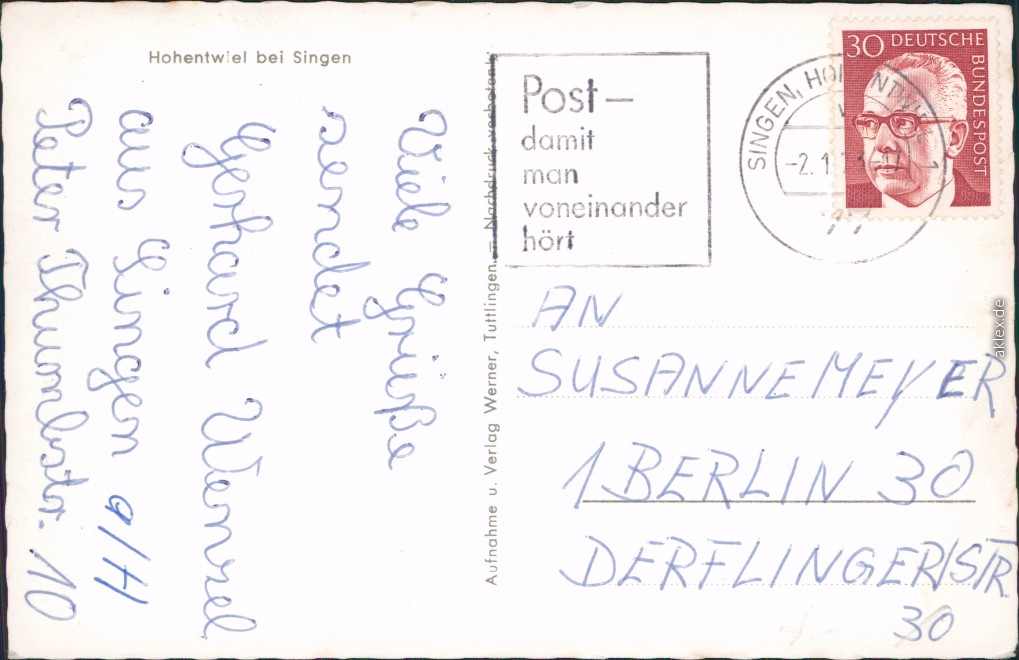 Hohentwiel bei Singen
Viele Grüße
sendet
Gerhard Wenzel
aus Singen a/H
Peter Thumbstr. 10
Aufnahme u. Verlag Werner, Tuttlingen. — Nachdruck verboten
Post –
damit
man
voneinander
hört
SINGEN, HOHENTWIEL 1
-2.1.73-17
30 DEUTSCHE
BUNDESPOST
AN
SUSANNE MEYER
1 BERLIN 30
DERFLINGER/STR.
30
aklex.de